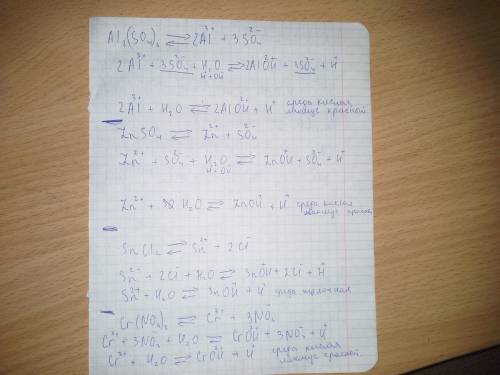 Al₂(SO₄)₃ ⇄ 2Al³⁺ + 3SO₄²⁻
2Al³⁺ + 3SO₄²⁻ + H₂O ⇄ 2AlOH²⁺ + 3SO₄²⁻ + H⁺
H⁺ + OH⁻
2Al³⁺ + H₂O ⇄ 2AlOH²⁺ + H⁺ среда кислая
лакмус красный
ZnSO₄ ⇄ Zn²⁺ + SO₄²⁻
Zn²⁺ + SO₄²⁻ + H₂O ⇄ ZnOH⁺ + SO₄²⁻ + H⁺
H⁺ + OH⁻
Zn²⁺ + H₂O ⇄ ZnOH⁺ + H⁺ среда кислая
лакмус красный
SnCl₂ ⇄ Sn²⁺ + 2Cl⁻
Sn²⁺ + 2Cl⁻ + H₂O ⇄ SnOH⁺ + 2Cl⁻ + H⁺
Sn²⁺ + H₂O ⇄ SnOH⁺ + H⁺ среда
Cr(NO₃)₃ ⇄ Cr³⁺ + 3NO₃⁻
Cr³⁺ + 3NO₃⁻ + H₂O ⇄ CrOH²⁺ + 3NO₃⁻ + H⁺
Cr³⁺ + H₂O ⇄ CrOH²⁺ + H⁺ среда кислая
лакмус красный